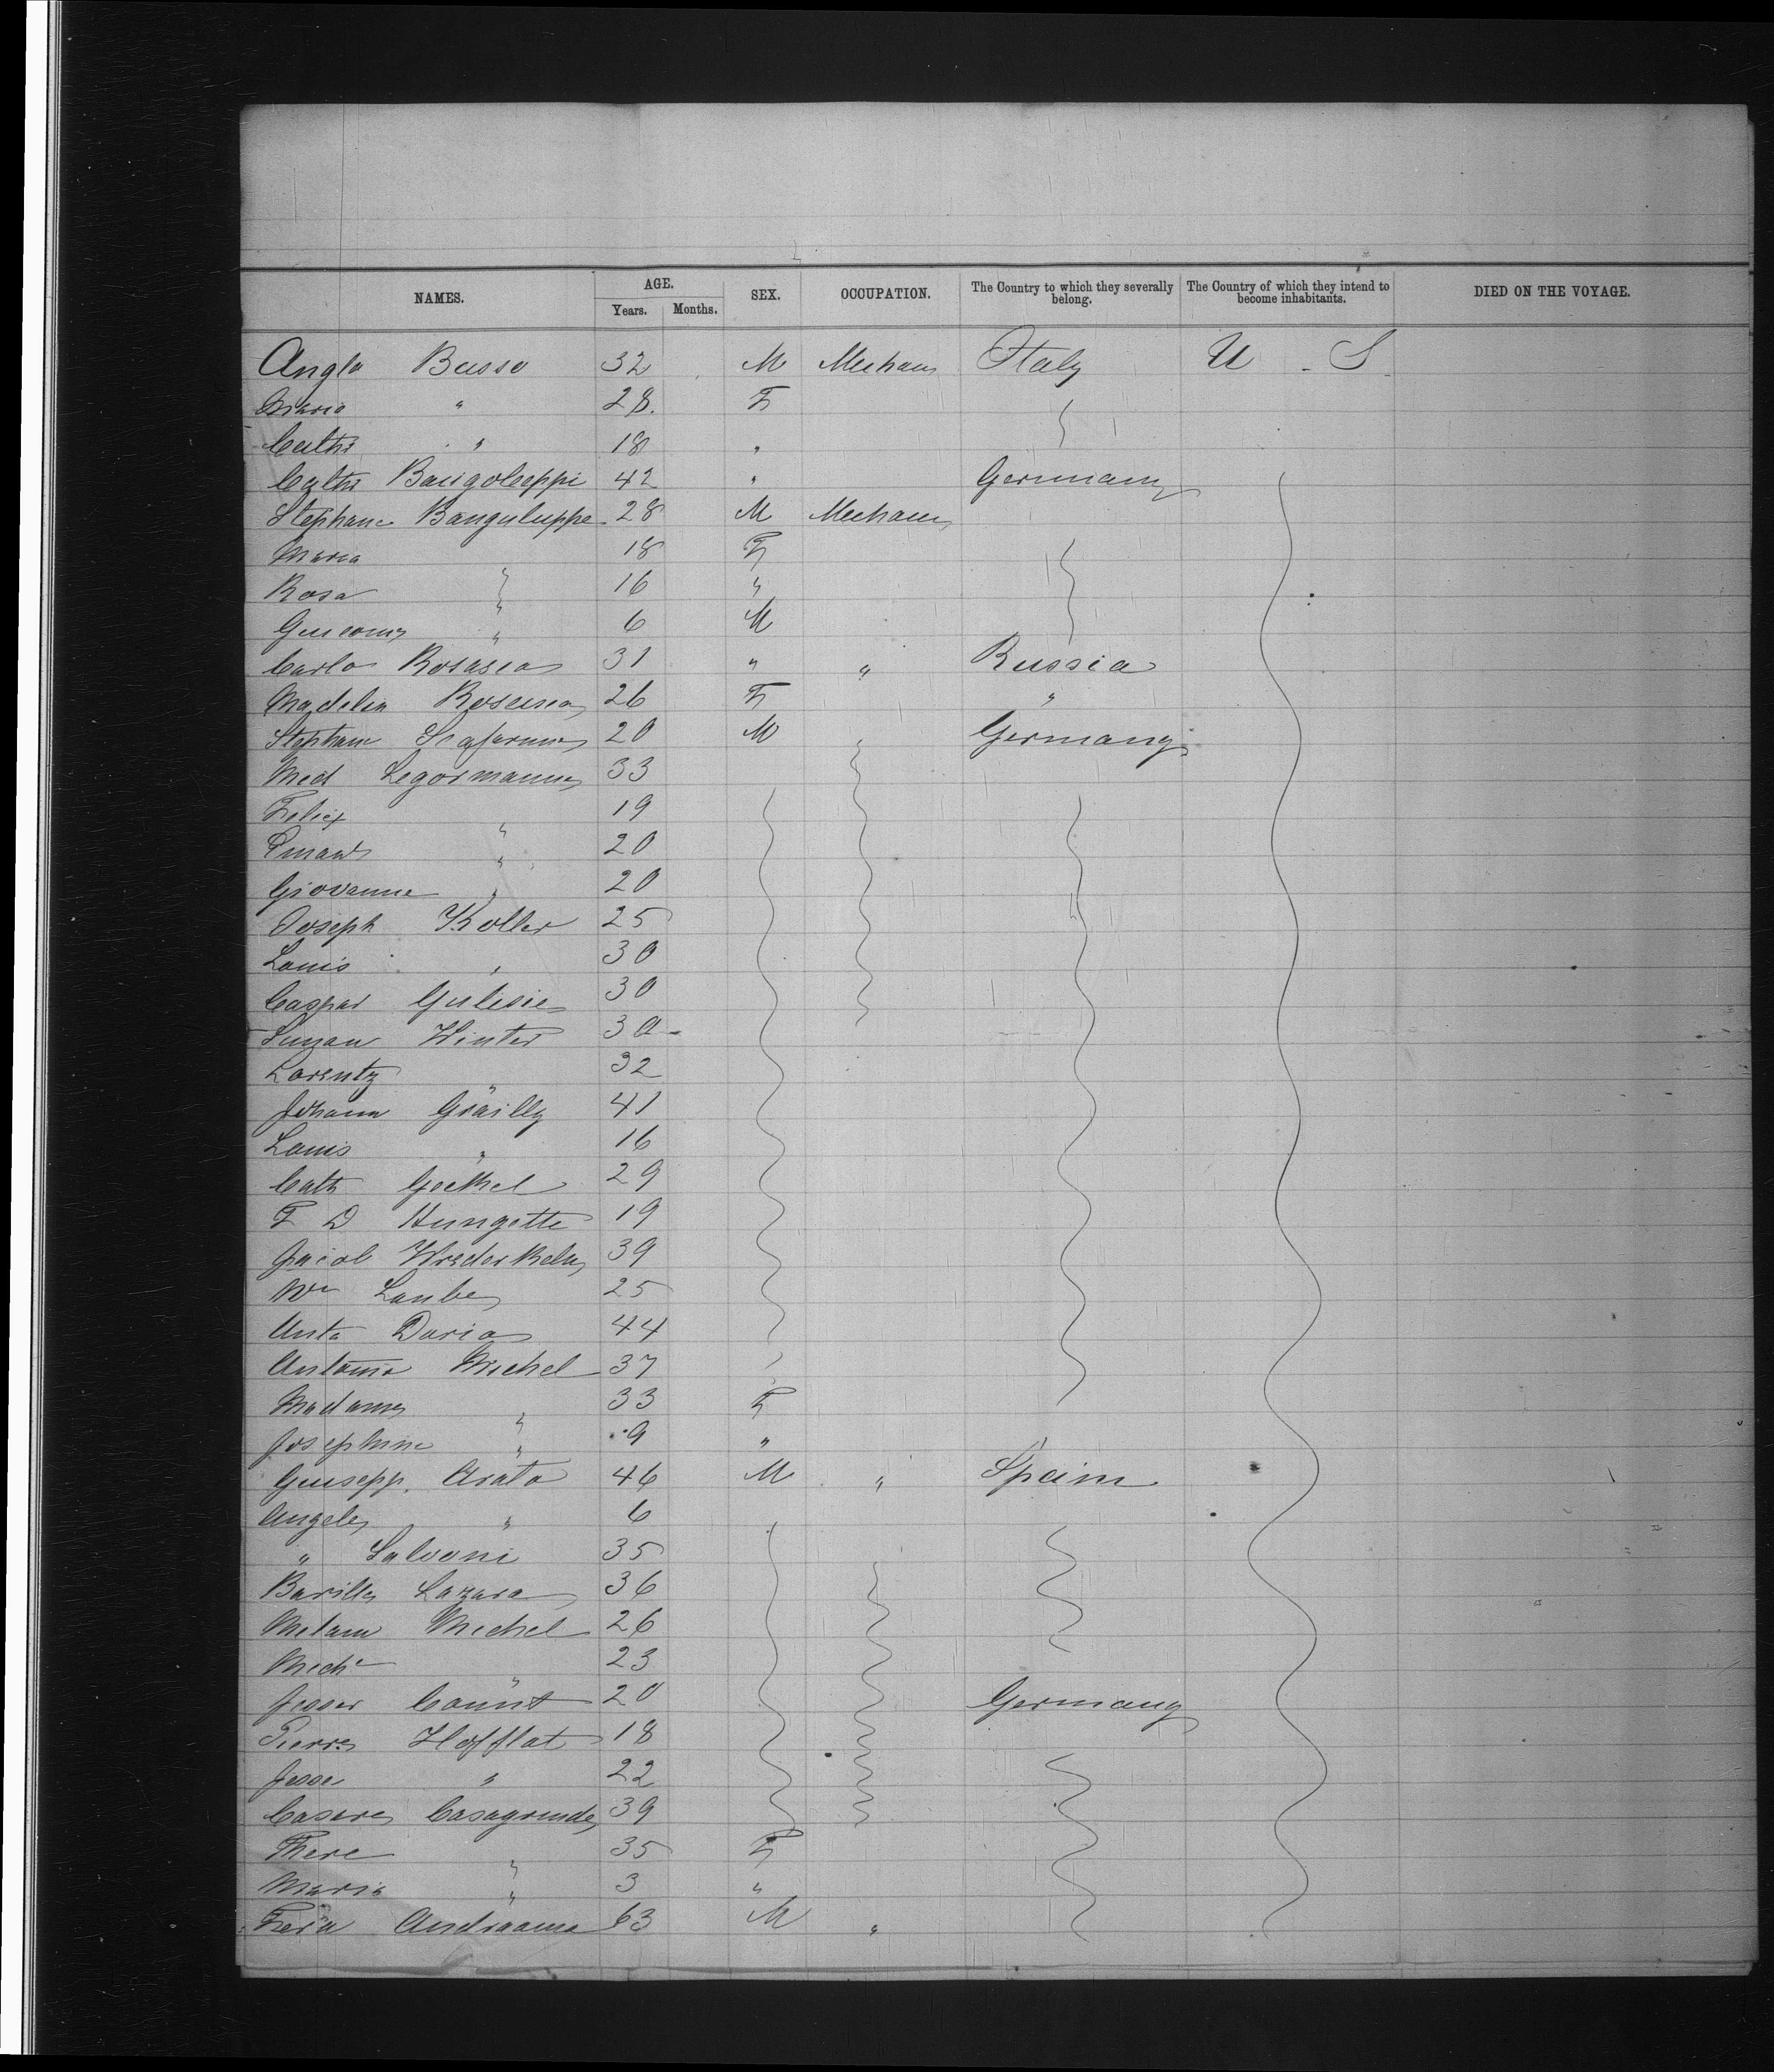 NAMES. AGE. Years. Months. SEX. OCCUPATION. The Country to which they severally belong. The Country of which they intend to become inhabitants. DIED ON THE VOYAGE.
Anglo Busso 32 M Mechanic Italy U S
Maria " 28 F
Cath " 18 "
Cath 42 " Germany
Stephane 28 M Mechanic
Maria 18 F
Rosa " 16 "
" 6 M
Carlo Rosasca 31 " " Russia
Madelin 26 F "
Stephane 20 M " Germany
Med Legormann 33
Felix " 19
" 20
Giovanne " 20
Joseph Koller 25
Louis " 30
Caspar 30
Winter 30
Lorentz 32
Johann Gräilly 41
Louis " 16
Cath Goethel 29
F D Hungette 19
Jacob 39
Wm Laube 25
Anto Daria 44
Antonio Michel 37
Madame " 33 F
Josephine " 9 "
Giusepp. Arata 46 M " Spain
Angele " 6
" Salvoni 35
Barilla Lazara 36
Michel 26
Mich 23
20 Germany
Pierre Hofflat 18
Jesse " 22
Casare Casagrande 39
There " 35 F
Maria " 3 "
63 M "